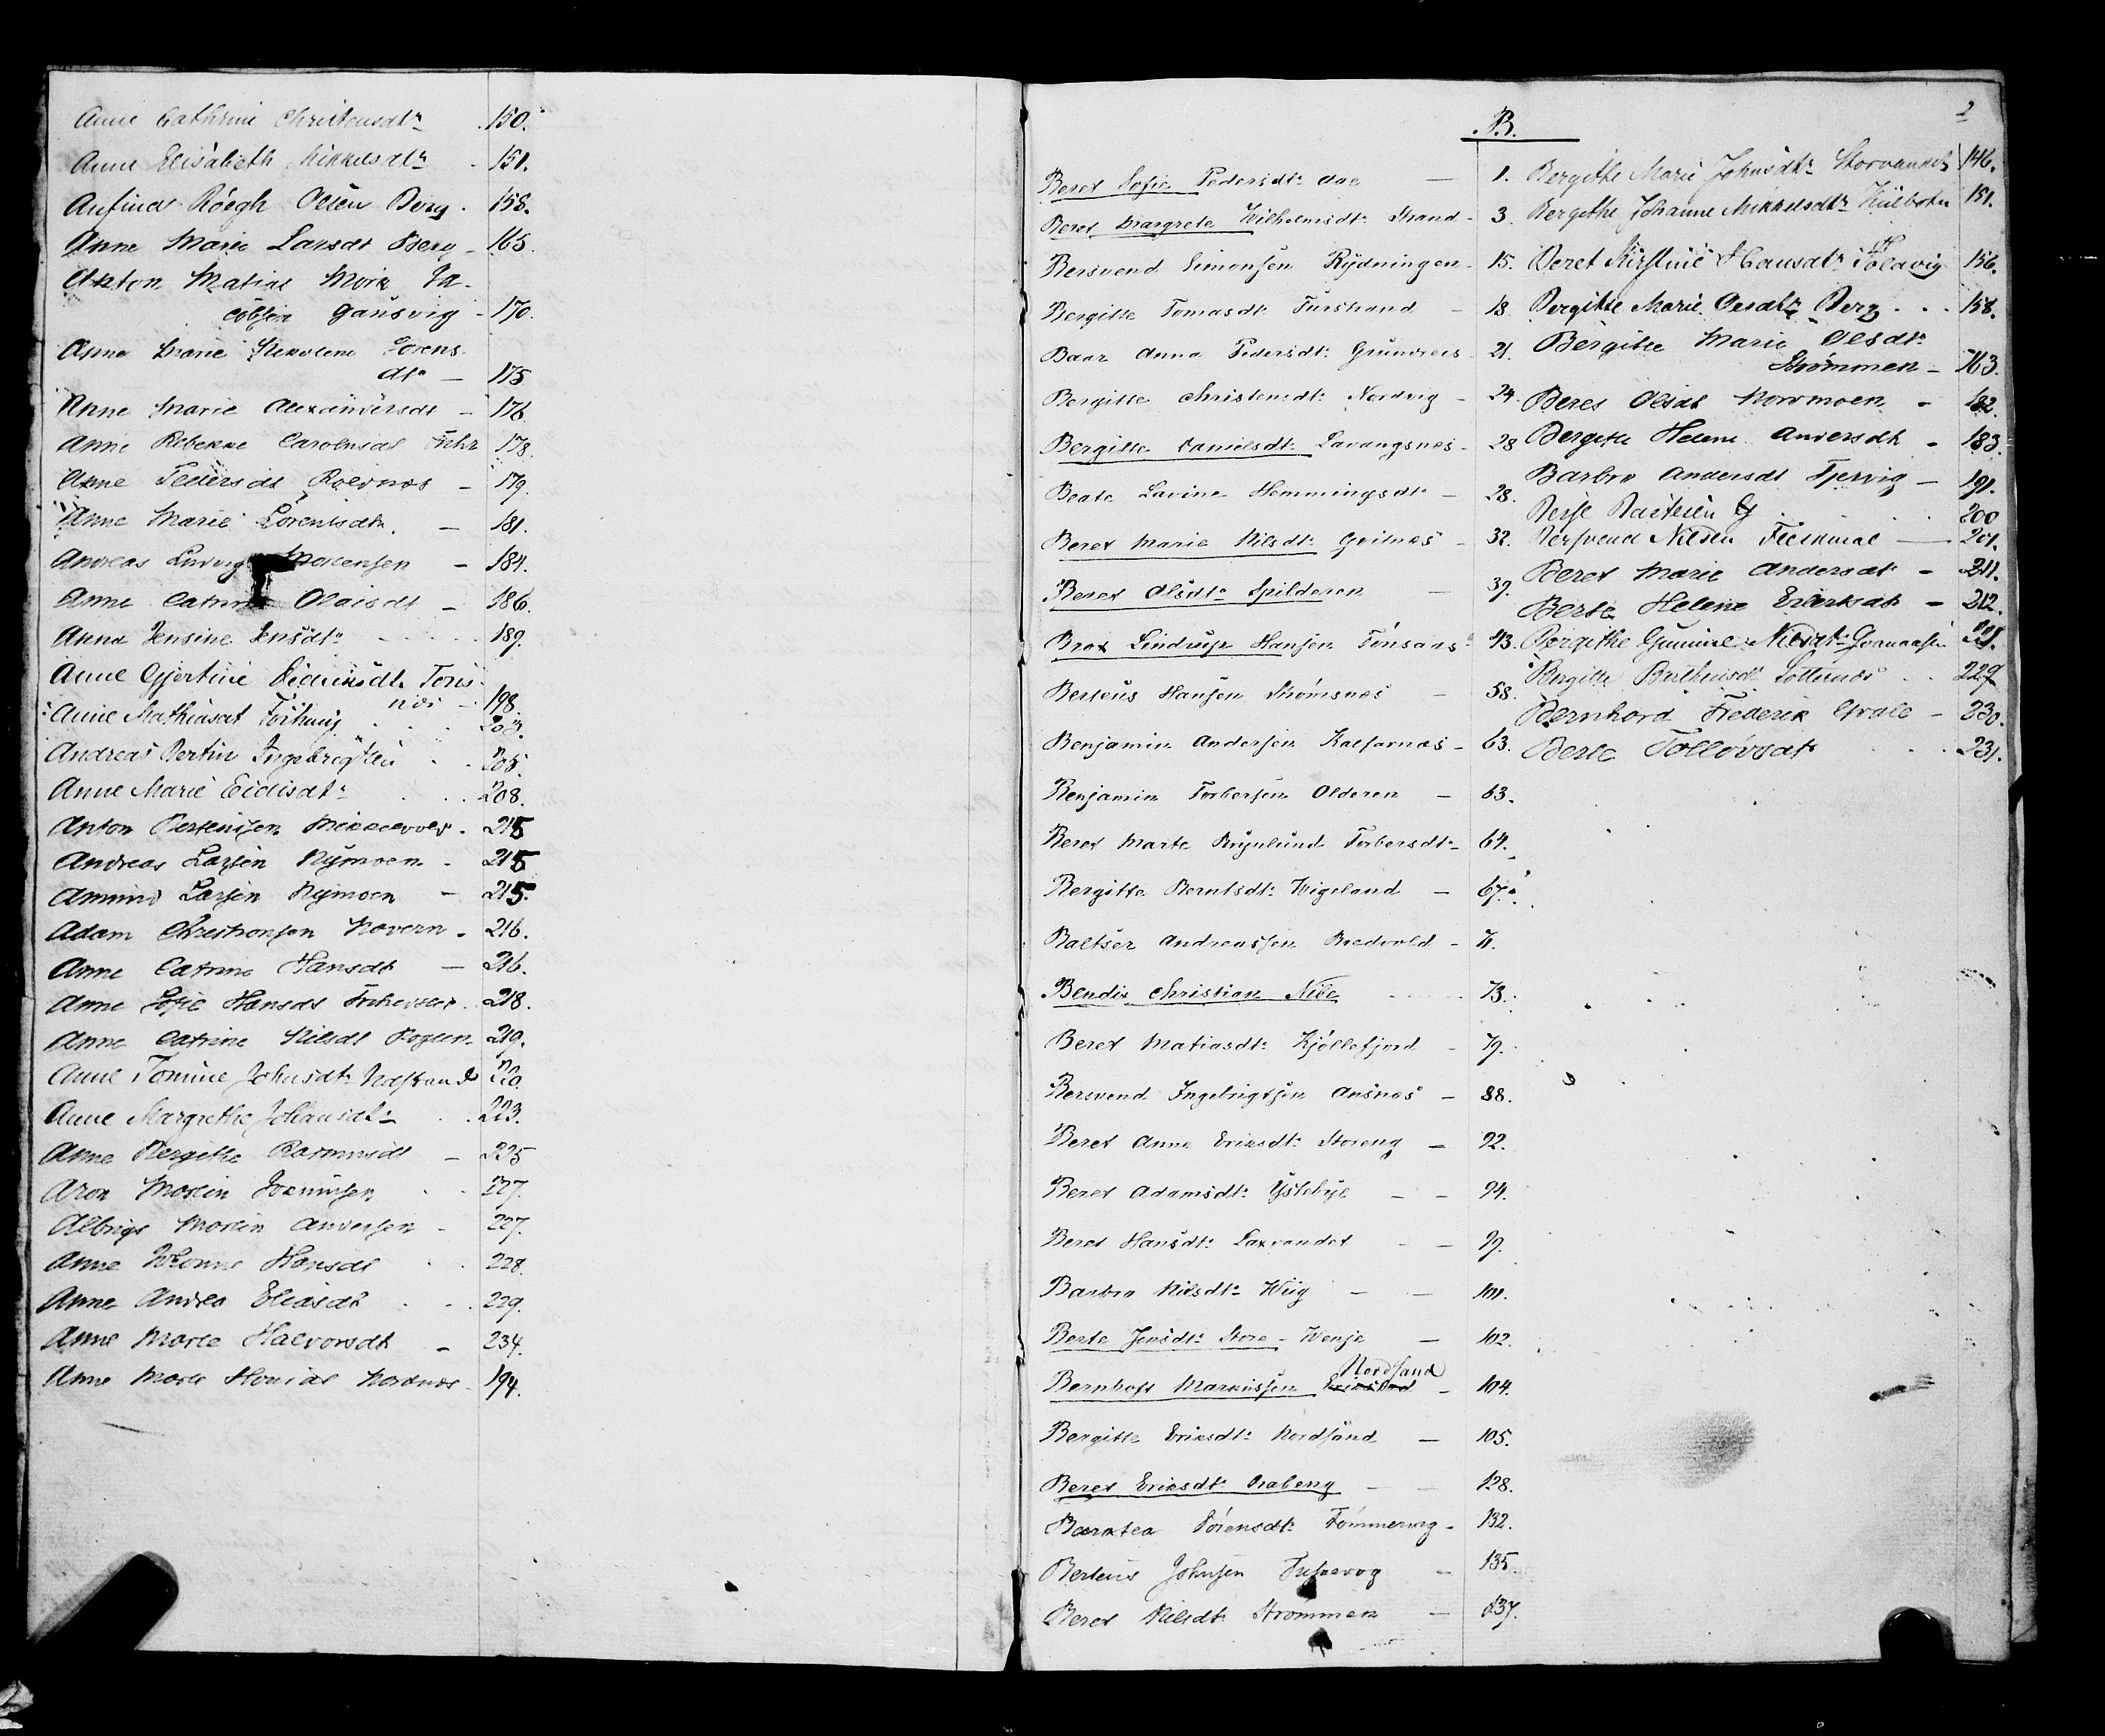 Anne Cathrine Christensdtr 150.
Anne Elisabeth Mikkelsdtr 151.
Anfind Röegh Olsen Berg 158.
Anne Marie Larsdt Berg 165.
Anton Matias Mörk Ja-
cobsen Gausvig 170.
Anne Marie Nikoline Lorens
dtr 175
Anne Marie Alexandersdt 176
Anne Rebekke Carolusdt 178.
Anne Pedersdt 179.
Anne Marie Lorentsdtr 181.
Andreas Ludvig Mortensen 184.
Anne Catrine Olaisdt 186.
Anna Jensine Jensdtr 189.
Anne Gjertine
198.
Anne Mathiasdt 203.
Andreas Bertin Ingebrigtsen 205.
Anne Marie Eidisdtr 208.
Anton Bertensen 215
Andreas Larsen Nymoen 215
Amund Larsen Nymoen 215.
Adam Christiansen 216.
Anne Catrine Hansdt 216.
Anne Sofie Hansdt 218.
Anne Catrine Nilsdt 219.
Anne Tomine Johnsdtr 220
Anne Margrethe Johansdtr 223.
Anne Bergithe Rasmusdt 225
Aron Martin 227.
Albrigt Martin Andersen 227.
Anne Johanne Hansdt 228.
Anne Andrea Eliasdt 229.
Anne Marte Halvorsdt 234.
Anne Marte Nordnæs 194.
2
B.
Beret Sofie Pedersdtr Aae 1.
Beret Margrete Wilhelmsdtr Strand 3.
Bersvend Simonsen Rydningen 15.
Bergitte Tomasdt Furstrand 18.
Baar Anna Pedersdtr Grundreis 21.
Bergitte Christensdtr Nordvig 24.
Bergitte Danielsdtr Lavangsnæs 28
Beate Lavine Hemmingsdtr 28.
Beret Marie Nilsdtr Grilnæs 32.
Beret Olsdtr Spilderen 39.
Brox Lindrup Hansen Finsaas 43.
Berteus Hansen Strömsnæs 58.
Benjamin Andersen Kalfarnæs 63.
Benjamin Torbersen Olderen 63.
Beret Marte Brynlund Torbersdtr 64.
Bergitte Berntsdtr Wigeland 67.
Baltser Andreassen Bredvold 71.
Bendix Christian Nibe 73.
Beret Matiasdtr Kjöllefjord 79.
Bersvend Ingebrigtsen Ansnæs 88.
Beret Anna Eriksdtr Storeng 92.
Beret Adamsdtr Ystebye 94.
Beret Hansdtr Laxvandet 97.
Barbro Nilsdtr Wiig 101.
Berte Jensdtr Store-Wenje 102.
Nordsand
Bernhoft Markussen 104.
Bergitte Eriksdtr Nordsand 105.
Beret Eriksdtr Brabeng 128.
Baratea Sörensdtr Tömmervig 132.
Berteus Johnsen 135.
Beret Nilsdtr Strömmen 137.
Bergithe Marie Johnsdtr Storvandet 146.
Bergithe Johanne Mikkelsdtr Kiilbotn 151.
Beret Kirstine Hansdtr 156.
Bergitte Marie Olsdtr Berg 158.
Bergitte Marie Olsdtr
Strömmen 163.
Beret Olsdt Nordmoen 182.
Bergitte Helene Andersdt 183.
Barbro Andersdt Tjervig 191.
200
Bersvend Nilsen 201.
Beret Marie Andersdt 211.
Berte Helene 212.
Bergithe Gunnild Nilsdtr 221.
Bergitte 229
Bernhard Frederik 230.
Berte Tollevsdt 231.